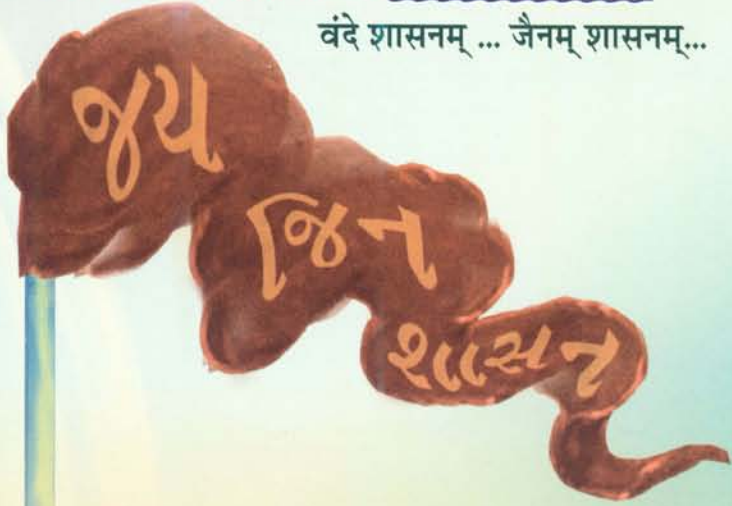 वंदे शासनम् ... जैनम् शासनम्...
જય
જિન
શાસન